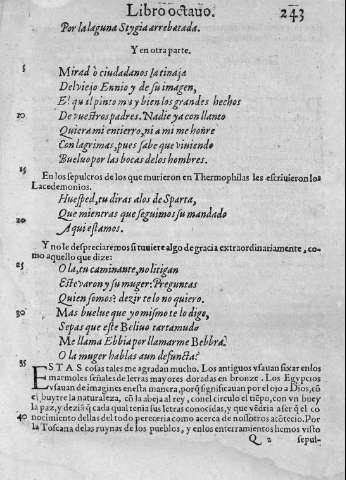 Libro octauo. 243
Por la laguna Stygia arrebatada.
Y en otra parte.
5 Mirad ò ciudadanos la tinaja
Del viejo Ennio y de su imagen,
El qual pinto muy bien los grandes hechos
10 De vuestros padres. Nadie ya con llanto
Quiera mi entierro, ni a mi me honre
Con lagrimas, pues sabe que viuiendo
Bueluo por las bocas de los hombres.
15 En los sepulcros de los que murieron en Thermophilas les escriuieron los
Lacedemonios.
Huesped, tu diras alos de Sparta,
Que mientras que seguimos su mandado
20 Aqui estamos.
Y no le despreciaremos si tuuiere algo de gracia extraordinariamente, co-
mo aquello que dize:
25 O la, tu caminante, no litigan
Este varon y su muger: Preguntas
Quien somos? dezir te lo no quiero.
30 Mas buelue que yo mismo te lo digo,
Sepas que este Beliuo tartamudo
Me llama Ebbia por llamarme Bebbra.
O la muger hablas aun defuncta?
35 ESTAS cosas tales me agradan mucho. Los antiguos vsauan fixar en los
marmoles señales de letras mayores doradas en bronze. Los Egypcios
vsauan de imagines en esta manera, porq̃ significauan por el ojo a Dios, cō
el buytre la naturaleza, cō la abeja al rey, con el circulo el tiẽpo, con vn buey
la paz, y deziā q̃ cada qual tenia sus letras conocidas, y que vẽdria a ser q̃ el co
40 nocimiento dellas del todo pereceria como acerca de nosotros acōtecio. Por
la Toscana de las ruynas de los pueblos, y en los enterramientos hemos visto
Q 2 sepul-